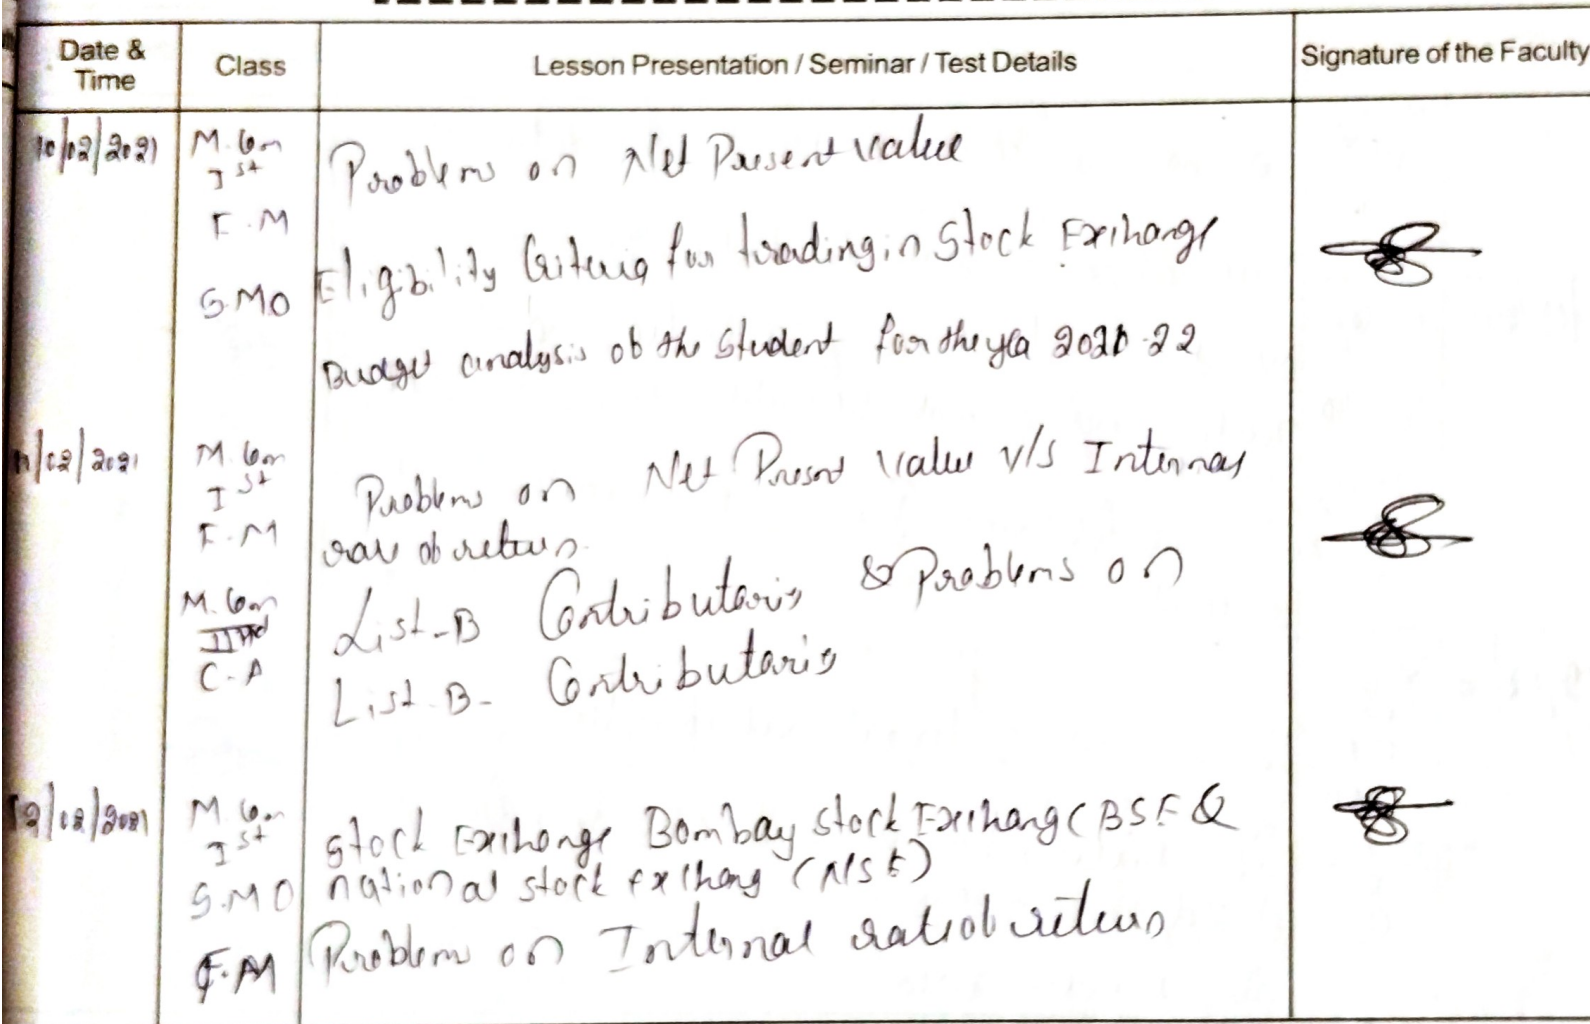 Date & Time Class Lesson Presentation / Seminar / Test Details Signature of the Faculty
10/02/2021 M.Com Ist Problems on Net Present value
F.M
S.MO Eligibility Criteria for trading in Stock Exchange
Budget analysis of the Student for the yea 2021-22
11/02/2021 M.Com Ist Problems on Net Present value v/s Internal
F.M rate of return.
M.Com IIIrd List-B Contributaris & Problems on
C.A List.B- Contributaris
12/02/2021 M.Com Ist Stock Exchange Bombay Stock Exchang (BSE &
S.MO national stock exchang (NSE)
F.M Problem on Internal rate of return